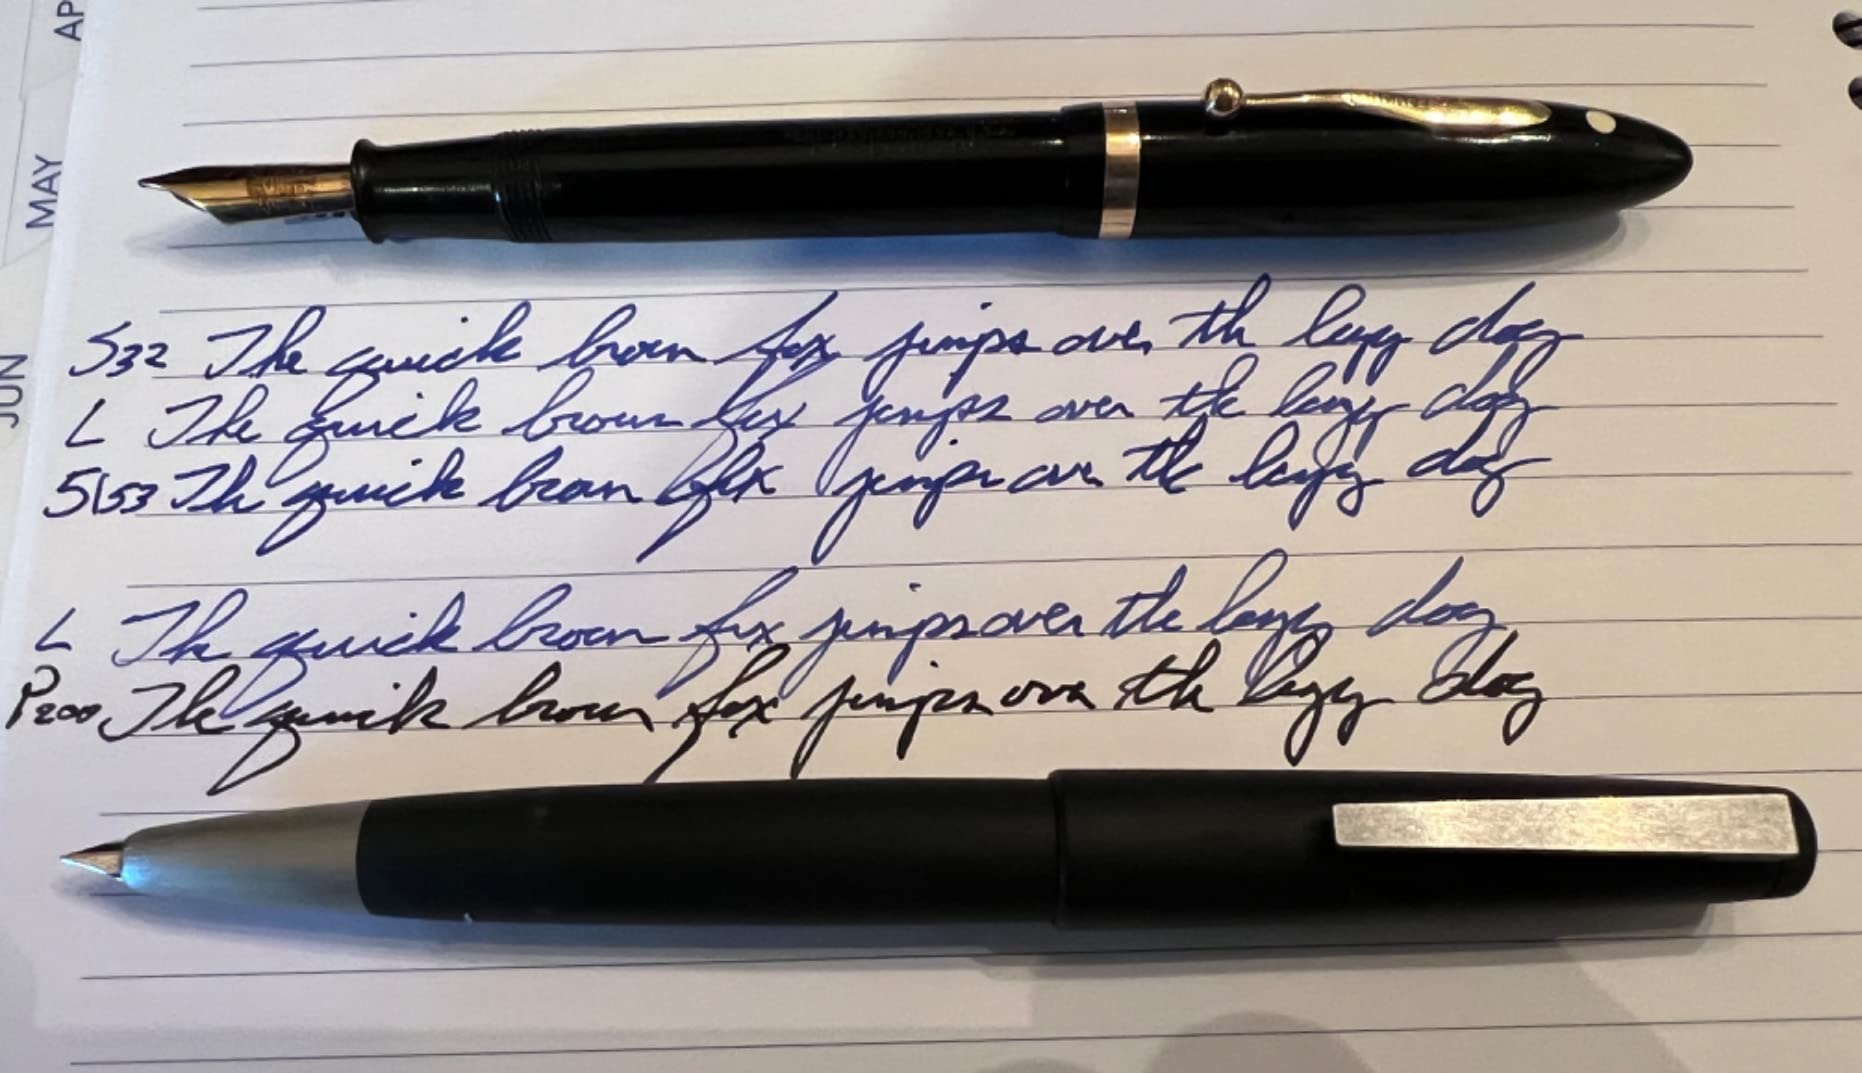 AP
MAY
JUN
S32 The quick brown fox jumps over th lazy dog
L The quick brown fox jumps over the lazy dog
The quick brown fox jumps over the lazy dog
L The quick brown fox jumps over the lazy dog
P200 The quick brown fox jumps over the lazy dog